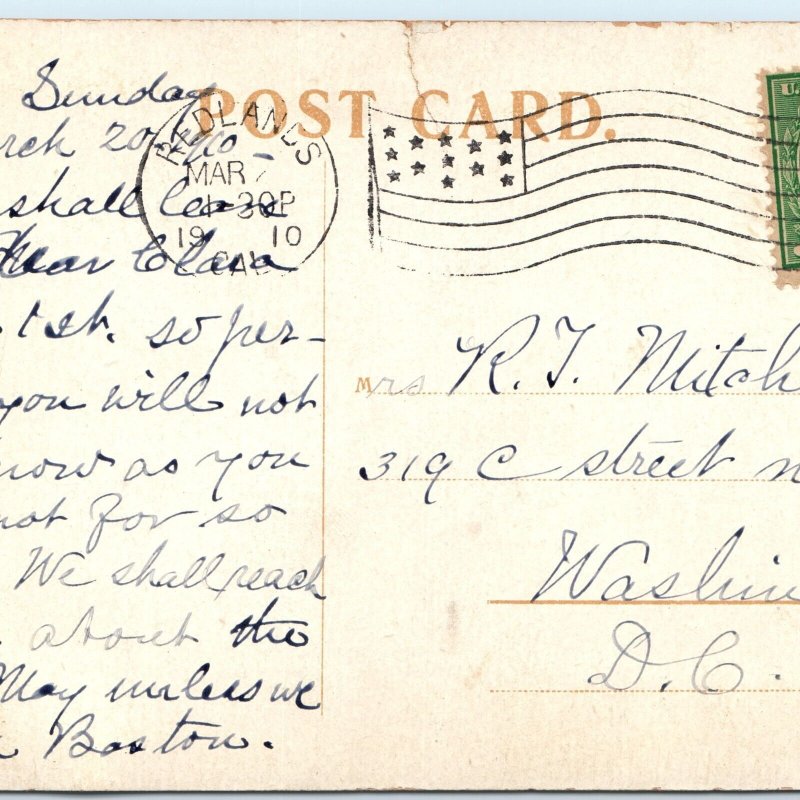 POST CARD.
REDLANDS
MAR
30P
19 10
CAL
U.
Sunday
rch 20
shall leave
Dear Clara
1st. so per-
you will not
now as you
not for so
We shall reach
about the
May unless we
Boston.
Mrs R. T. Mitch
319 C street n
Washin
D.C.